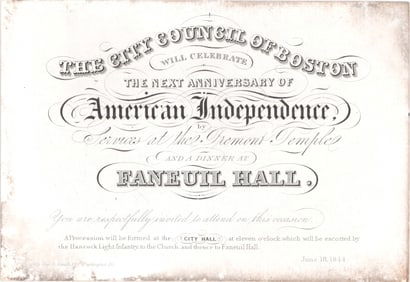 THE CITY COUNCIL OF BOSTON
WILL CELEBRATE
THE NEXT ANNIVERSARY OF
American Independence,
by
Services at the Tremont Temple
AND A DINNER AT
FANEUIL HALL.
You are respectfully invited to attend on this occasion.
A Procession will be formed at the CITY HALL at eleven o'clock which will be escorted by
the Hancock Light Infantry, to the Church, and thence to Faneuil Hall.
June 18, 1844.